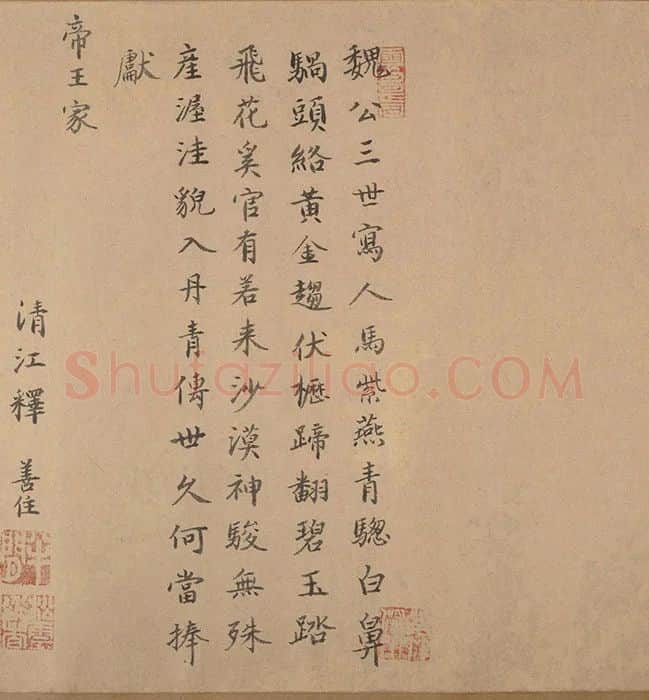 魏公三世寫人馬紫燕青驄白鼻
騧頭絡黃金趨伏櫪蹄翻碧玉踏
飛花奚官有若来沙漠神駿無殊
産渥洼貌入丹青傳世久何當捧
獻
帝王家
清江釋善住
Shufaziliao.COM